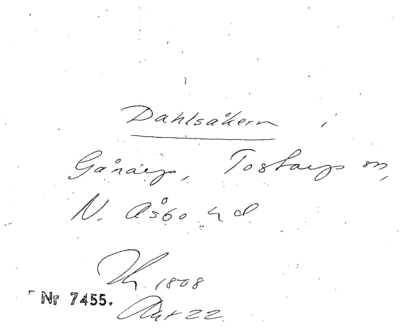 Dahlsåkern i
Gånarp, Tostarps sn,
N. Åsbo hd
1808
Nr 7455.
22